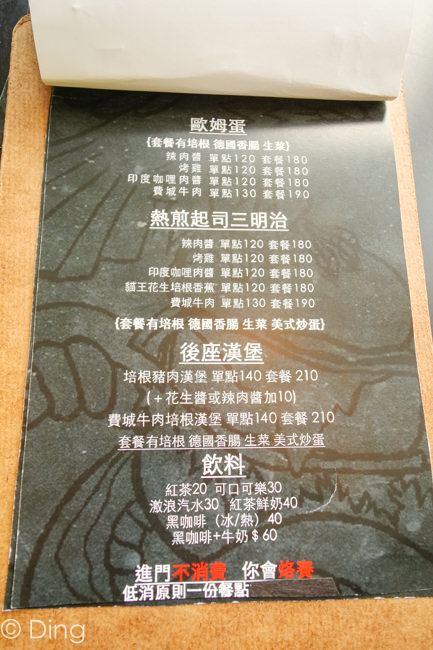 歐姆蛋
{套餐有培根 德國香腸 生菜}
辣肉醬 單點120 套餐180
烤雞 單點120 套餐180
印度咖哩肉醬 單點120 套餐180
費城牛肉 單點130 套餐190
熱煎起司三明治
辣肉醬 單點120 套餐180
烤雞 單點120 套餐180
印度咖哩肉醬 單點120 套餐180
貓王花生培根香蕉 單點120 套餐180
費城牛肉 單點130 套餐190
{套餐有培根 德國香腸 生菜 美式炒蛋}
後座漢堡
培根豬肉漢堡 單點140 套餐 210
(+花生醬或辣肉醬加10)
費城牛肉培根漢堡 單點140 套餐 210
套餐有培根 德國香腸 生菜 美式炒蛋
飲料
紅茶20 可口可樂30
激浪汽水30 紅茶鮮奶40
黑咖啡（冰/熱）40
黑咖啡+牛奶＄60
進門不消費 你會烙賽
低消原則一份餐點
© Ding